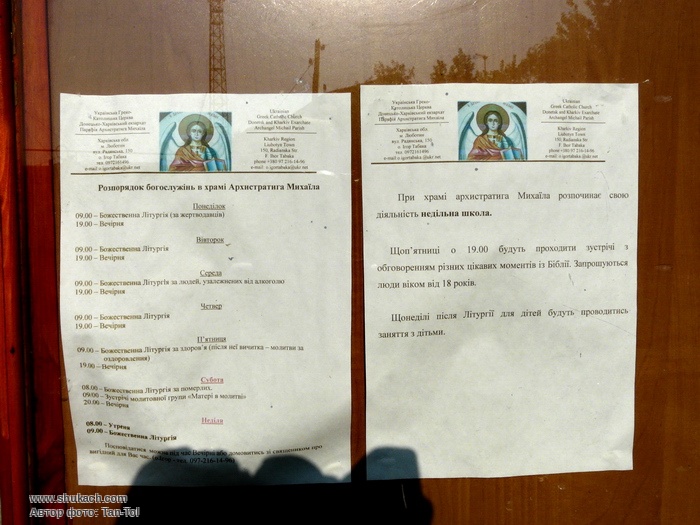 Українська Греко-
Католицька Церква
Донецько-Харківський екзархат
Парафія Архистратига Михаїла
Харківська обл.
м. Люботин
вул. Радянська, 150
о. Ігор Табака
тел. 0972161496
e-mail: o.igortabaka@ukr.net
Ukrainian
Greek Catholic Church
Donetsk and Kharkiv Exarchate
Archangel Michail Parish
Kharkiv Region
Liubotyn Town
150, Radianska Str.
F. Ihor Tabaka
phone +380 97 216-14-96
e-mail: o.igortabaka@ukr.net
Розпорядок богослужінь в храмі Архистратига Михаїла
Понеділок
09.00 – Божественна Літургія (за жертводавців)
19.00 – Вечірня
Вівторок
09.00 – Божественна Літургія
19.00 – Вечірня
Середа
09.00 – Божественна Літургія за людей, узалежнених від алкоголю
19.00 – Вечірня
Четвер
09.00 – Божественна Літургія
19.00 – Вечірня
П'ятниця
09.00 – Божественна Літургія за здоров'я (після неї вичитка – молитви за
оздоровлення)
19.00 – Вечірня
Субота
08.00 – Божественна Літургія за померлих.
09:00 – Зустрічі молитовної групи «Матері в молитві»
20.00 – Вечірня
Неділя
08.00 – Утреня
09.00 – Божественна Літургія
Посповідатися можна під час Вечірні або домовитись зі священиком про
вигідний для Вас час. тел. 097-216-14-96)
Українська Греко-
Католицька Церква
Донецько-Харківський екзархат
Парафія Архистратига Михаїла
Харківська обл.
м. Люботин
вул. Радянська, 150
о. Ігор Табака
тел. 0972161496
e-mail: o.igortabaka@ukr.net
Ukrainian
Greek Catholic Church
Donetsk and Kharkiv Exarchate
Archangel Michail Parish
Kharkiv Region
Liubotyn Town
150, Radianska Str.
F. Ihor Tabaka
phone +380 97 216-14-96
e-mail: o.igortabaka@ukr.net
При храмі архистратига Михаїла розпочинає свою
діяльність недільна школа.
Щоп'ятниці о 19.00 будуть проходити зустрічі з
обговоренням різних цікавих моментів із Біблії. Запрошуються
люди віком від 18 років.
Щонеділі після Літургії для дітей будуть проводитись
заняття з дітьми.
www.shukach.com
Автор фото: Tan-Tol